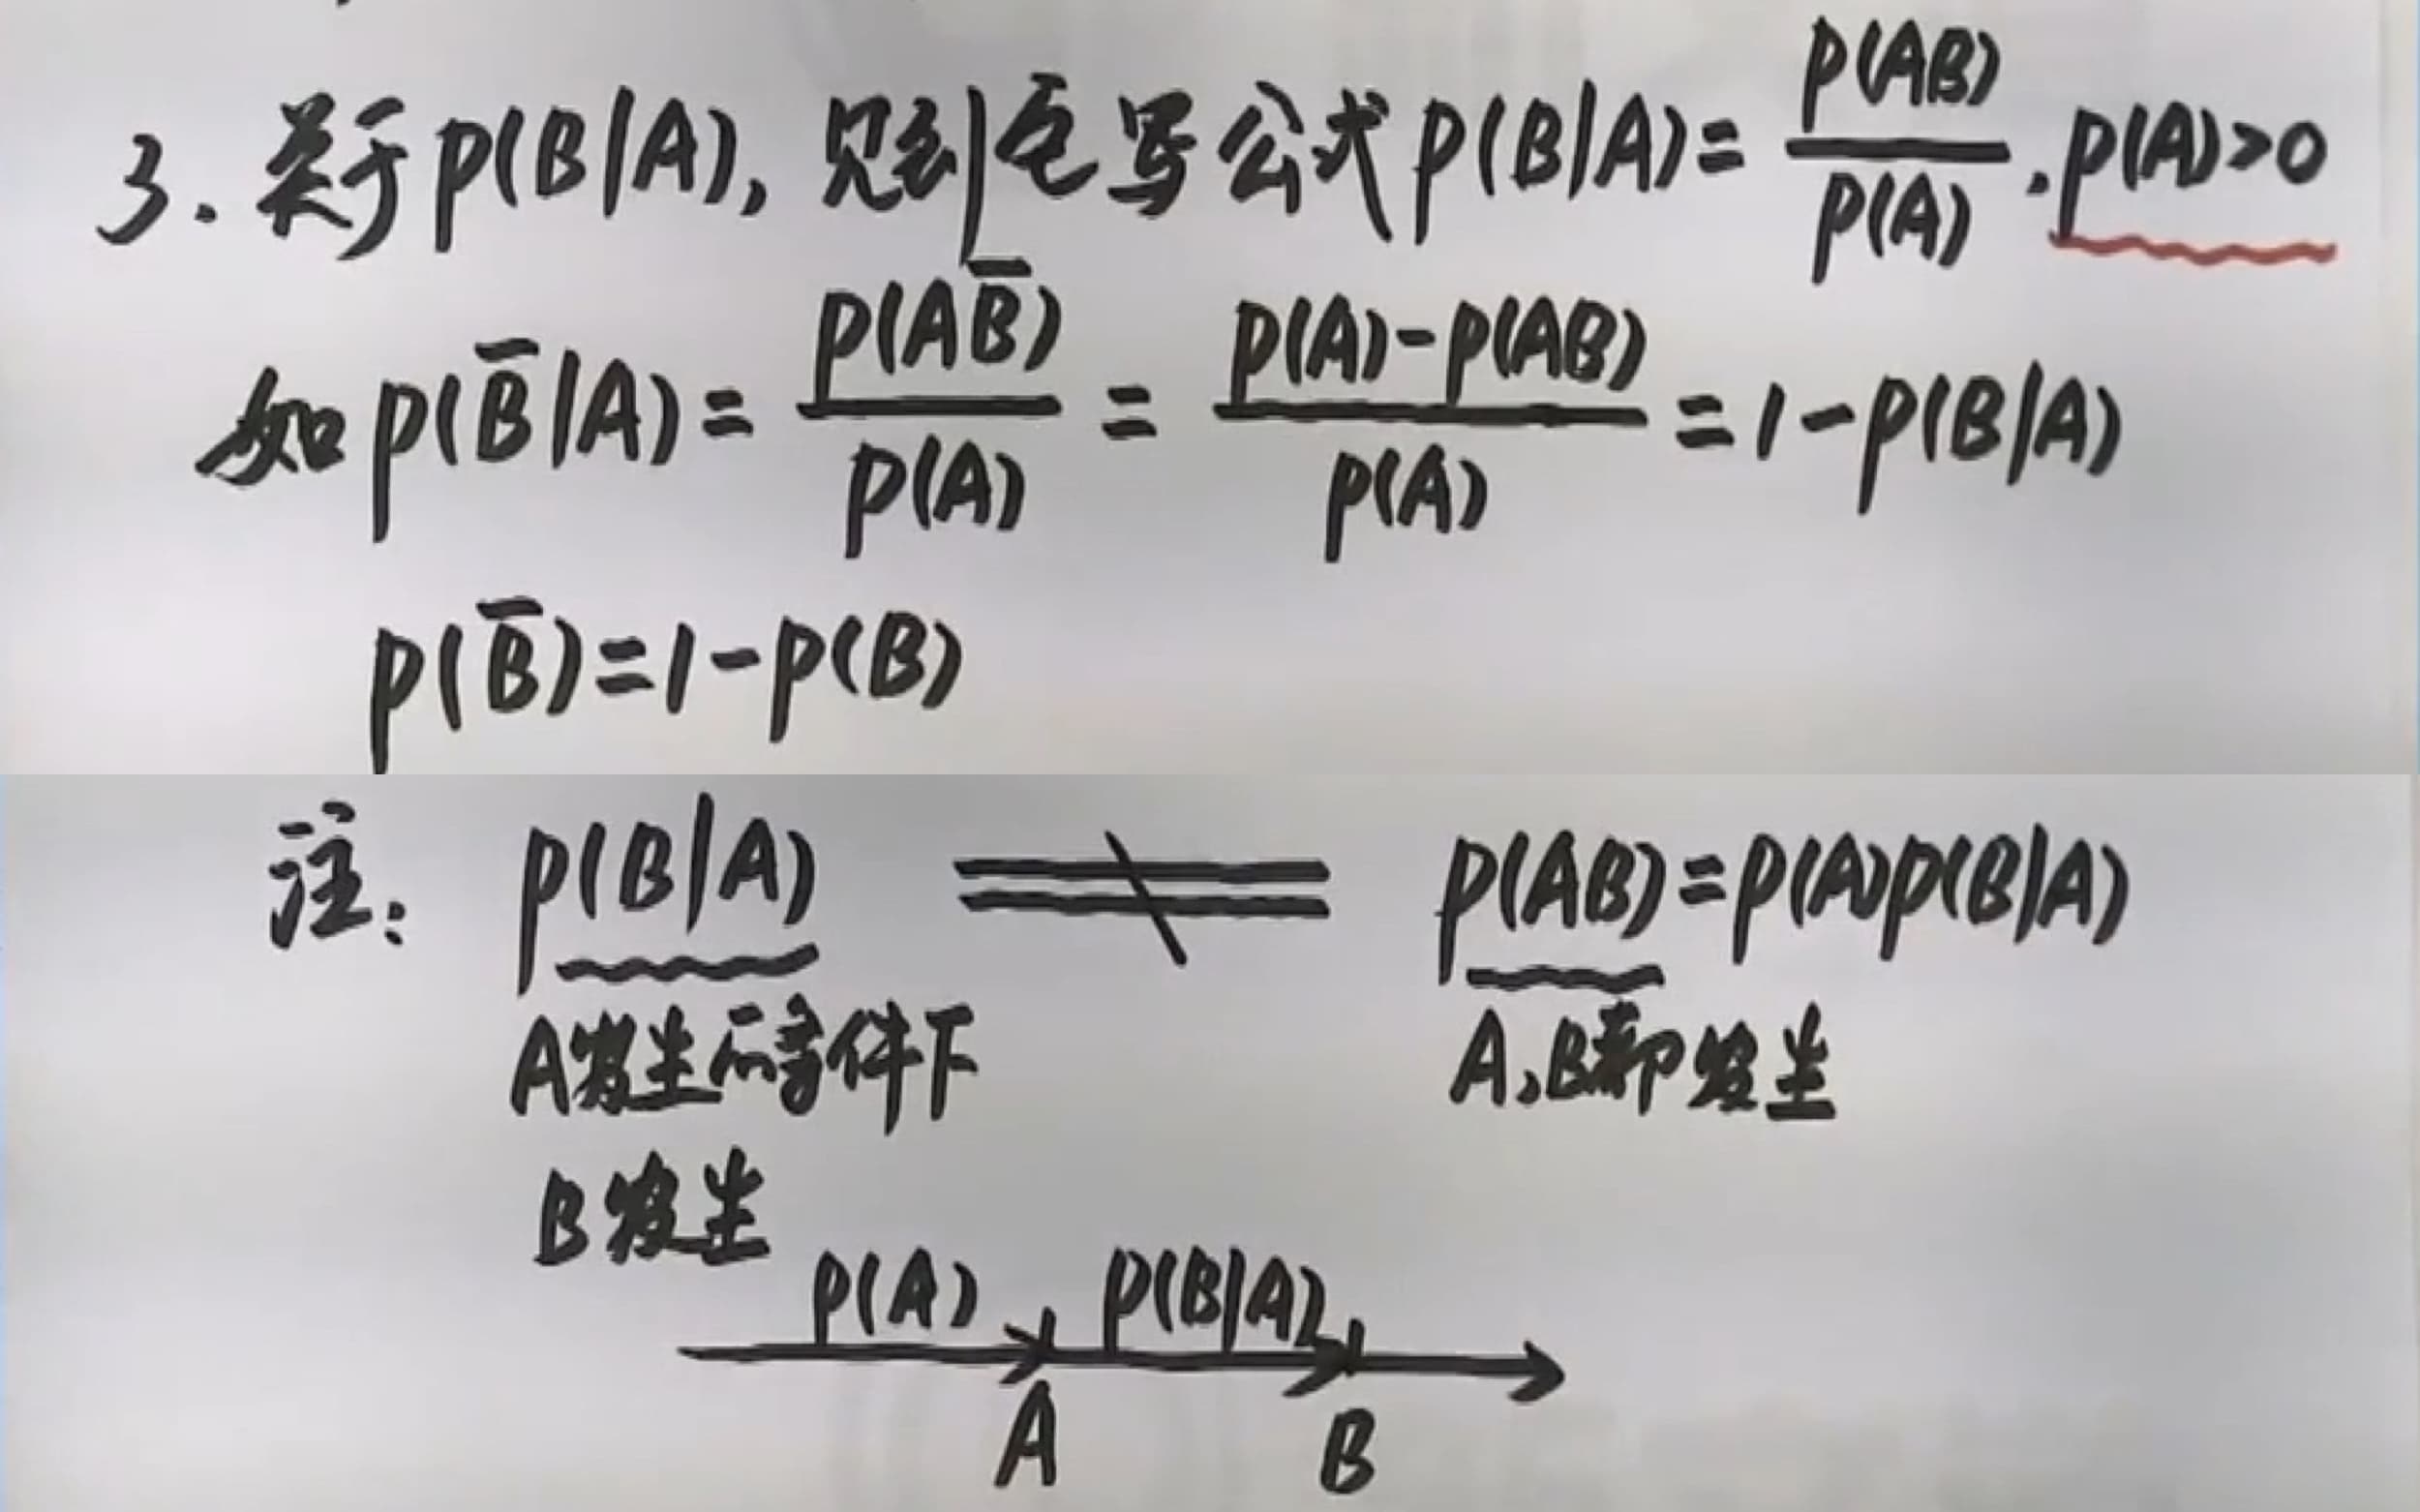 3. 关于 p(B|A), 见到它写公式 p(B|A) = p(AB)/p(A), p(A)>0
如 p(B̅|A) = p(AB̅)/p(A) = (p(A)-p(AB))/p(A) = 1-p(B|A)
p(B̅) = 1-p(B)
注: p(B|A) ≠ p(AB) = p(A)p(B|A)
A发生的条件下 A,B都发生
B发生
p(A) p(B|A)
A B